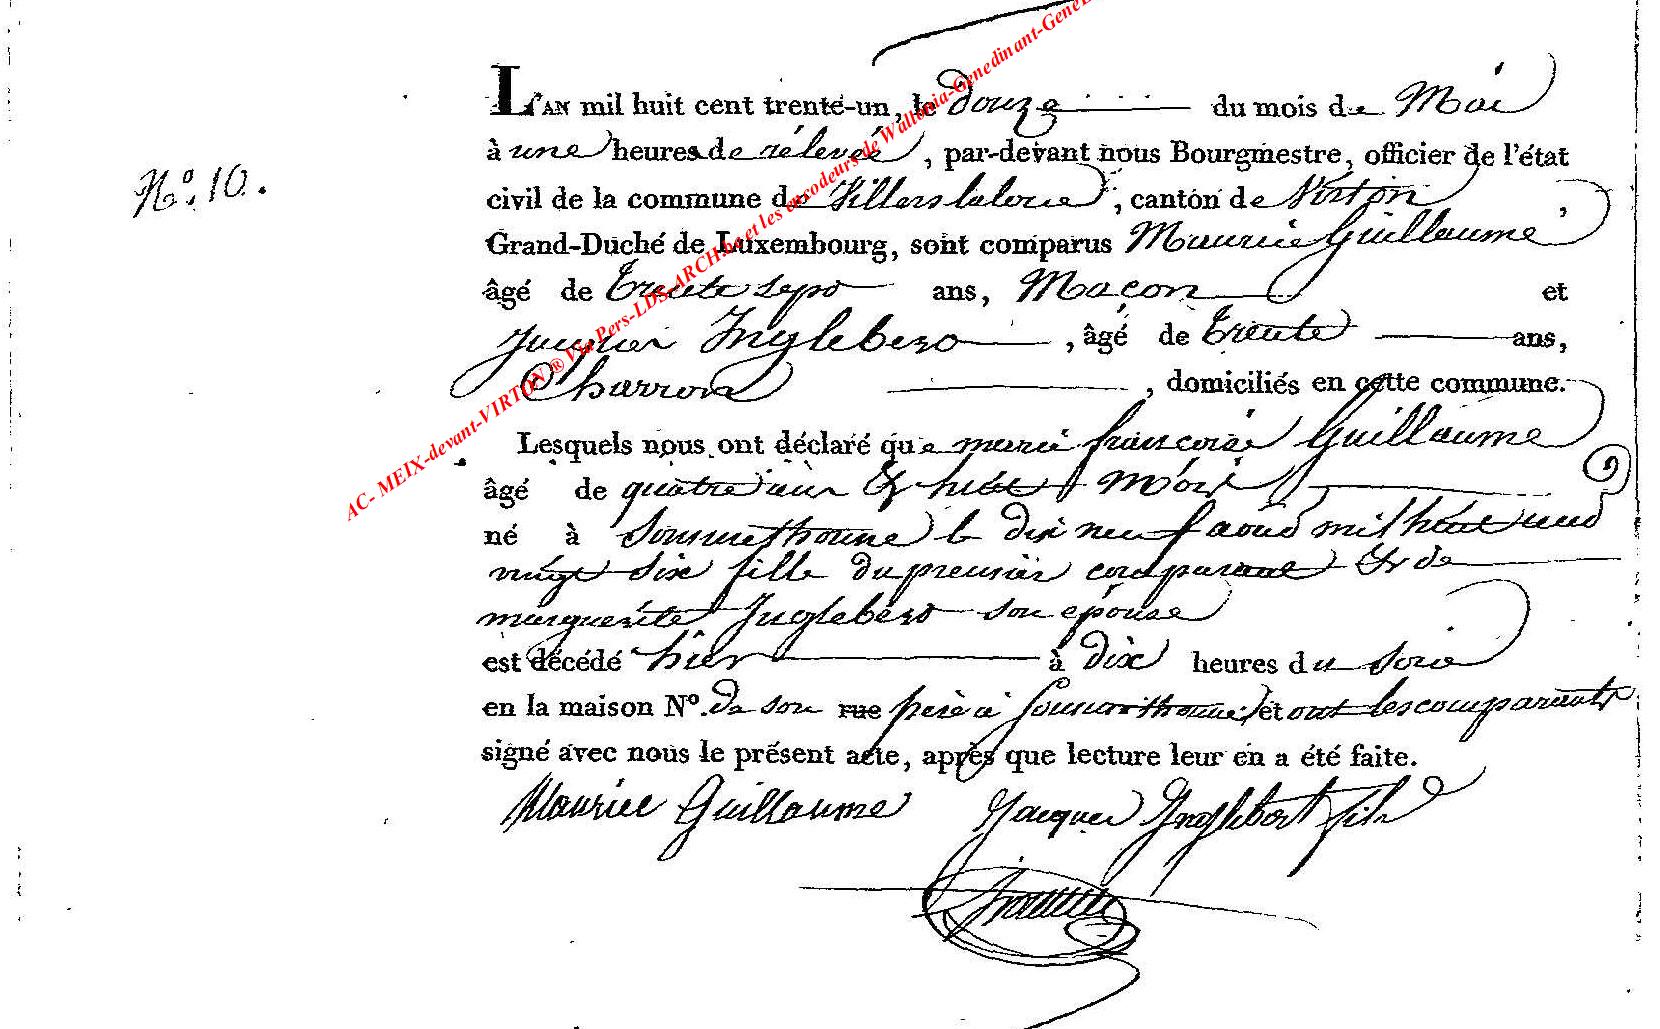 L'AN mil huit cent trente-un, le douze du mois de Mai
à une heures de rélevée, par-devant nous Bourgmestre, officier de l'état
N.° 10.
civil de la commune de Villers laloue, canton de Virton,
Grand-Duché de Luxembourg, sont comparus Maurice Guillaume
âgé de trente sept ans, Maçon et
Jacques Inglebert, âgé de trente ans,
Charron, domiciliés en cette commune.
Lesquels nous ont déclaré que marie françoise Guillaume
âgé de quatre ans & huit Mois
né à Sommethonne le dix neuf aout mil huit cent
vingt six fille du premier comparant & de
marguerite Inglebert son épouse
est décédé hier à dix heures du soir
en la maison N°. de son rue père à Sommethonne et ont les comparants
signé avec nous le présent acte, après que lecture leur en a été faite.
Maurice Guillaume Jacques Inglebert fils
AC- MEIX-devant-VIRTON ® Via Pers-LDS-ARCH.be et les encodeurs de Wallonia-Genedinant-GeneB